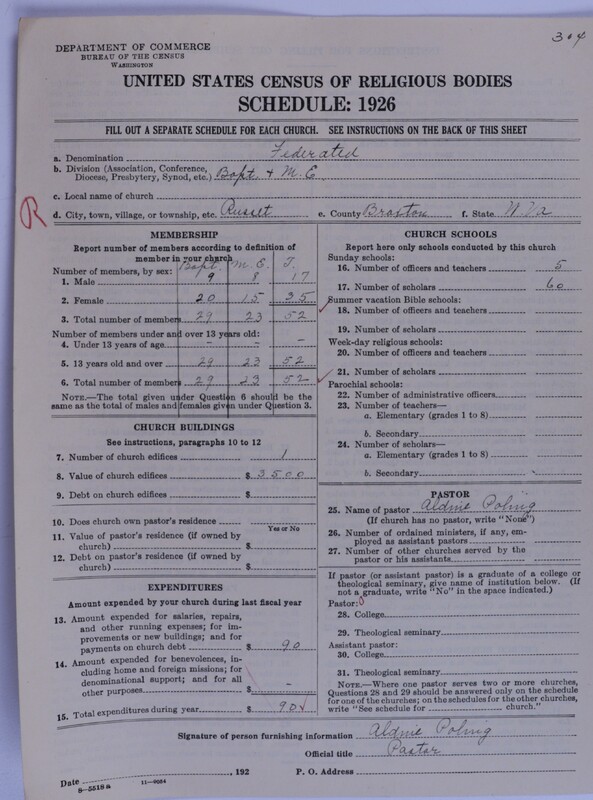 304
DEPARTMENT OF COMMERCE
BUREAU OF THE CENSUS
WASHINGTON
UNITED STATES CENSUS OF RELIGIOUS BODIES
SCHEDULE: 1926
FILL OUT A SEPARATE SCHEDULE FOR EACH CHURCH. SEE INSTRUCTIONS ON THE BACK OF THIS SHEET
a. Denomination Federated
b. Division (Association, Conference,
Diocese, Presbytery, Synod, etc.) Bapt. & M. E.
c. Local name of church
R
d. City, town, village, or township, etc. Russet e. County Braxton f. State W. Va
MEMBERSHIP
Report number of members according to definition of
member in your church
Bapt. M. E. T.
Number of members, by sex:
1. Male 9 8 17
2. Female 20 15 35
3. Total number of members 29 23 52
Number of members under and over 13 years old:
4. Under 13 years of age - - -
5. 13 years old and over 29 23 52
6. Total number of members 29 23 52
NOTE.—The total given under Question 6 should be the
same as the total of males and females given under Question 3.
CHURCH BUILDINGS
See instructions, paragraphs 10 to 12
7. Number of church edifices 1
8. Value of church edifices $ 3500
9. Debt on church edifices $
10. Does church own pastor's residence
Yes or No
11. Value of pastor's residence (if owned by
church) $
12. Debt on pastor's residence (if owned by
church) $
EXPENDITURES
Amount expended by your church during last fiscal year
13. Amount expended for salaries, repairs,
and other running expenses; for im-
provements or new buildings; and for
payments on church debt $ 90
14. Amount expended for benevolences, in-
cluding home and foreign missions; for
denominational support; and for all
other purposes $ -
15. Total expenditures during year $ 90
CHURCH SCHOOLS
Report here only schools conducted by this church
Sunday schools:
16. Number of officers and teachers 5
17. Number of scholars 60
Summer vacation Bible schools:
18. Number of officers and teachers
19. Number of scholars
Week-day religious schools:
20. Number of officers and teachers
21. Number of scholars
Parochial schools:
22. Number of administrative officers
23. Number of teachers—
a. Elementary (grades 1 to 8)
b. Secondary
24. Number of scholars—
a. Elementary (grades 1 to 8)
b. Secondary
PASTOR
25. Name of pastor Aldnie Poling
(If church has no pastor, write "None")
26. Number of ordained ministers, if any, em-
ployed as assistant pastors
27. Number of other churches served by the
pastor or his assistants
If pastor (or assistant pastor) is a graduate of a college or
theological seminary, give name of institution below. (If
not a graduate, write "No" in the space indicated.)
Pastor: 0
28. College
29. Theological seminary
Assistant pastor:
30. College
31. Theological seminary
NOTE.—Where one pastor serves two or more churches,
Questions 28 and 29 should be answered only on the schedule
for one of the churches; on the schedules for the other churches,
write "See schedule for church."
Signature of person furnishing information Aldnie Poling
Official title Pastor
Date , 192 P. O. Address
8-5518 a 11-9034